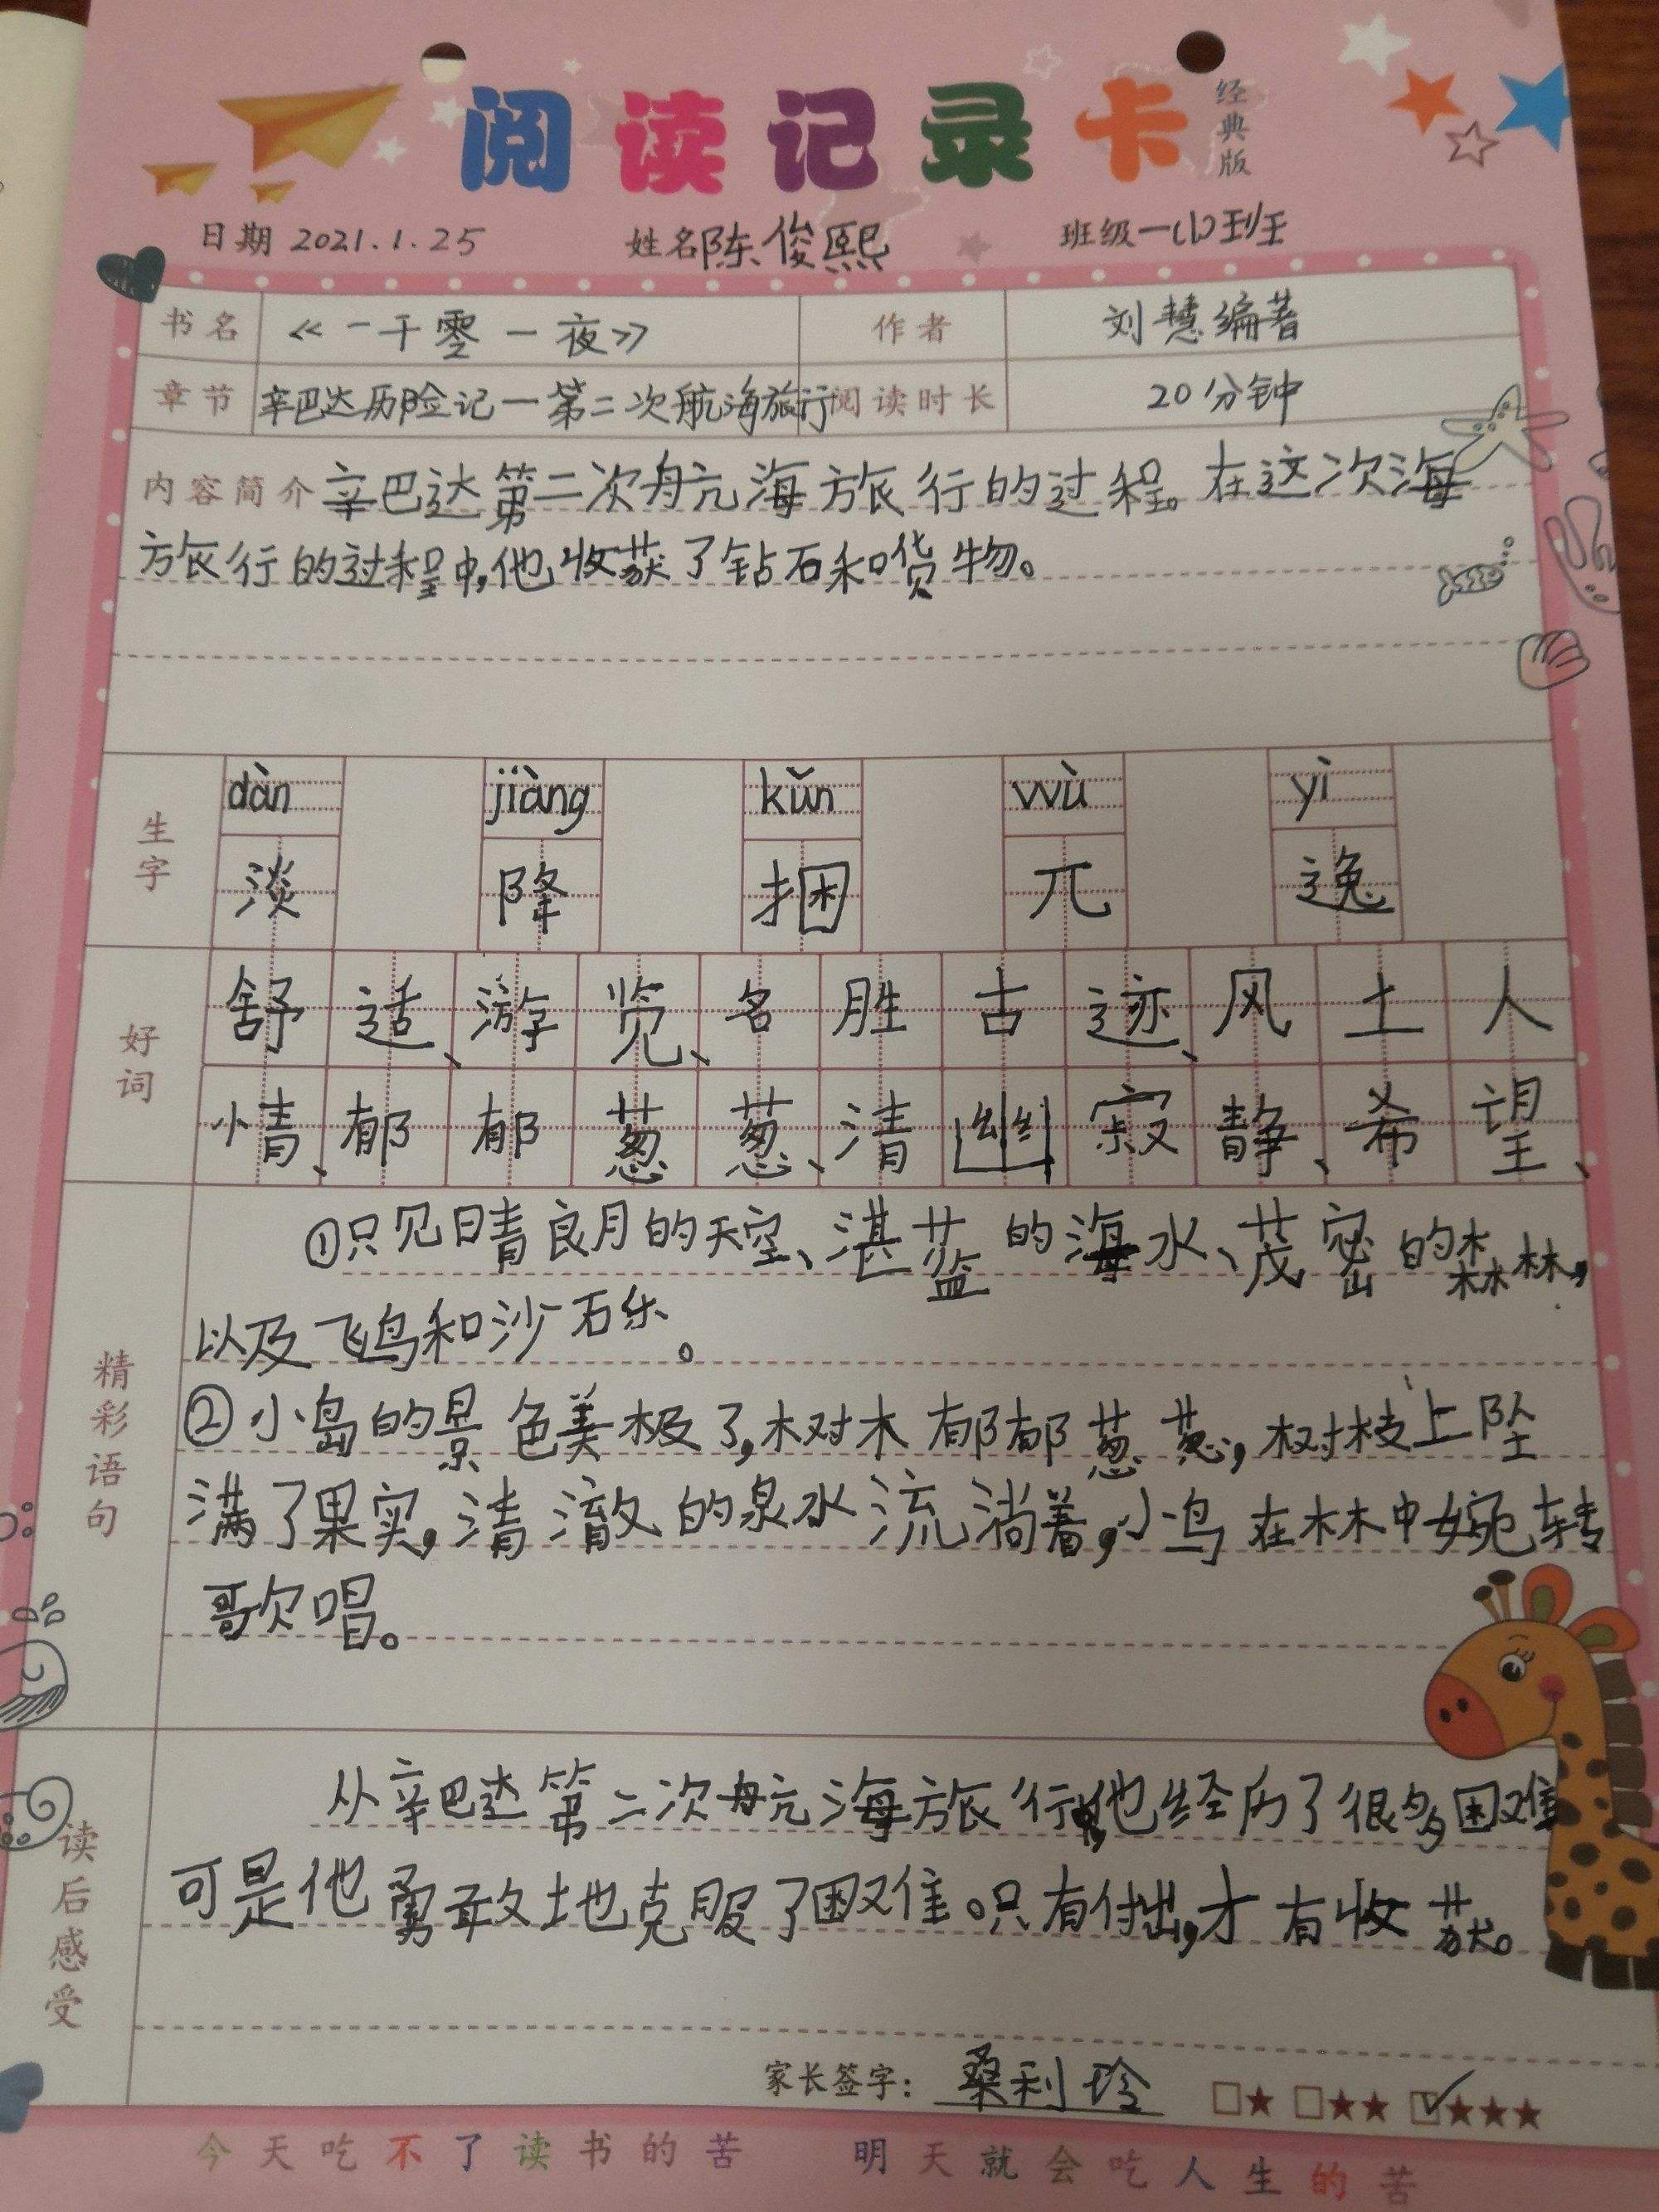 阅读记录卡 经典版
日期 2021.1.25 姓名 陈俊熙 班级 一(1)班
书名 《一千零一夜》 作者 刘慧编著
章节 辛巴达历险记一第二次航海旅行 阅读时长 20分钟
内容简介 辛巴达第二次航海旅行的过程。在这次海
旅行的过程中,他收获了钻石和货物。
生字
dàn jiàng kǔn wù yì
淡 降 捆 兀 逸
好词
舒适、游览、名胜古迹、风土人
情、郁郁葱葱、清幽寂静、希望、
精彩语句
①只见晴良月的天空、湛蓝的海水、茂密的森林,
以及飞鸟和沙石乐。
②小岛的景色美极了,树木郁郁葱葱,树枝上坠
满了果实,清澈的泉水流淌着,小鸟在林中婉转
歌唱。
读后感受
从辛巴达第二次航海旅行中,他经历了很多困难
可是他勇敢地克服了困难。只有付出,才有收获。
家长签字: 桑利玲 □★ □★★ ☑★★★
今天吃不了读书的苦 明天就会吃人生的苦